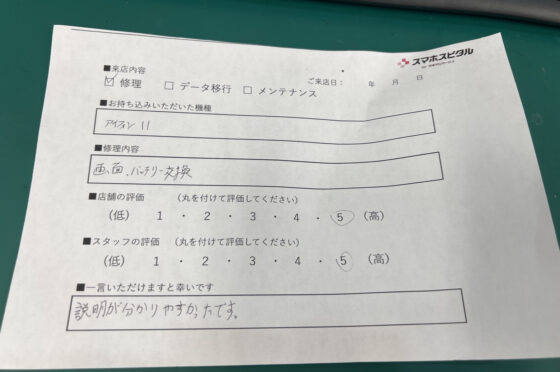 スマホスピタル
■来店内容
ご来店日： 年 月 日
☑ 修理 □ データ移行 □ メンテナンス
■お持ち込みいただいた機種
アイフォン 11
■修理内容
画面、バッテリー交換
■店舗の評価 （丸を付けて評価してください）
（低） 1 ・ 2 ・ 3 ・ 4 ・ 5 （高）
■スタッフの評価 （丸を付けて評価してください）
（低） 1 ・ 2 ・ 3 ・ 4 ・ 5 （高）
■一言いただけますと幸いです
説明が分かりやすかったです。